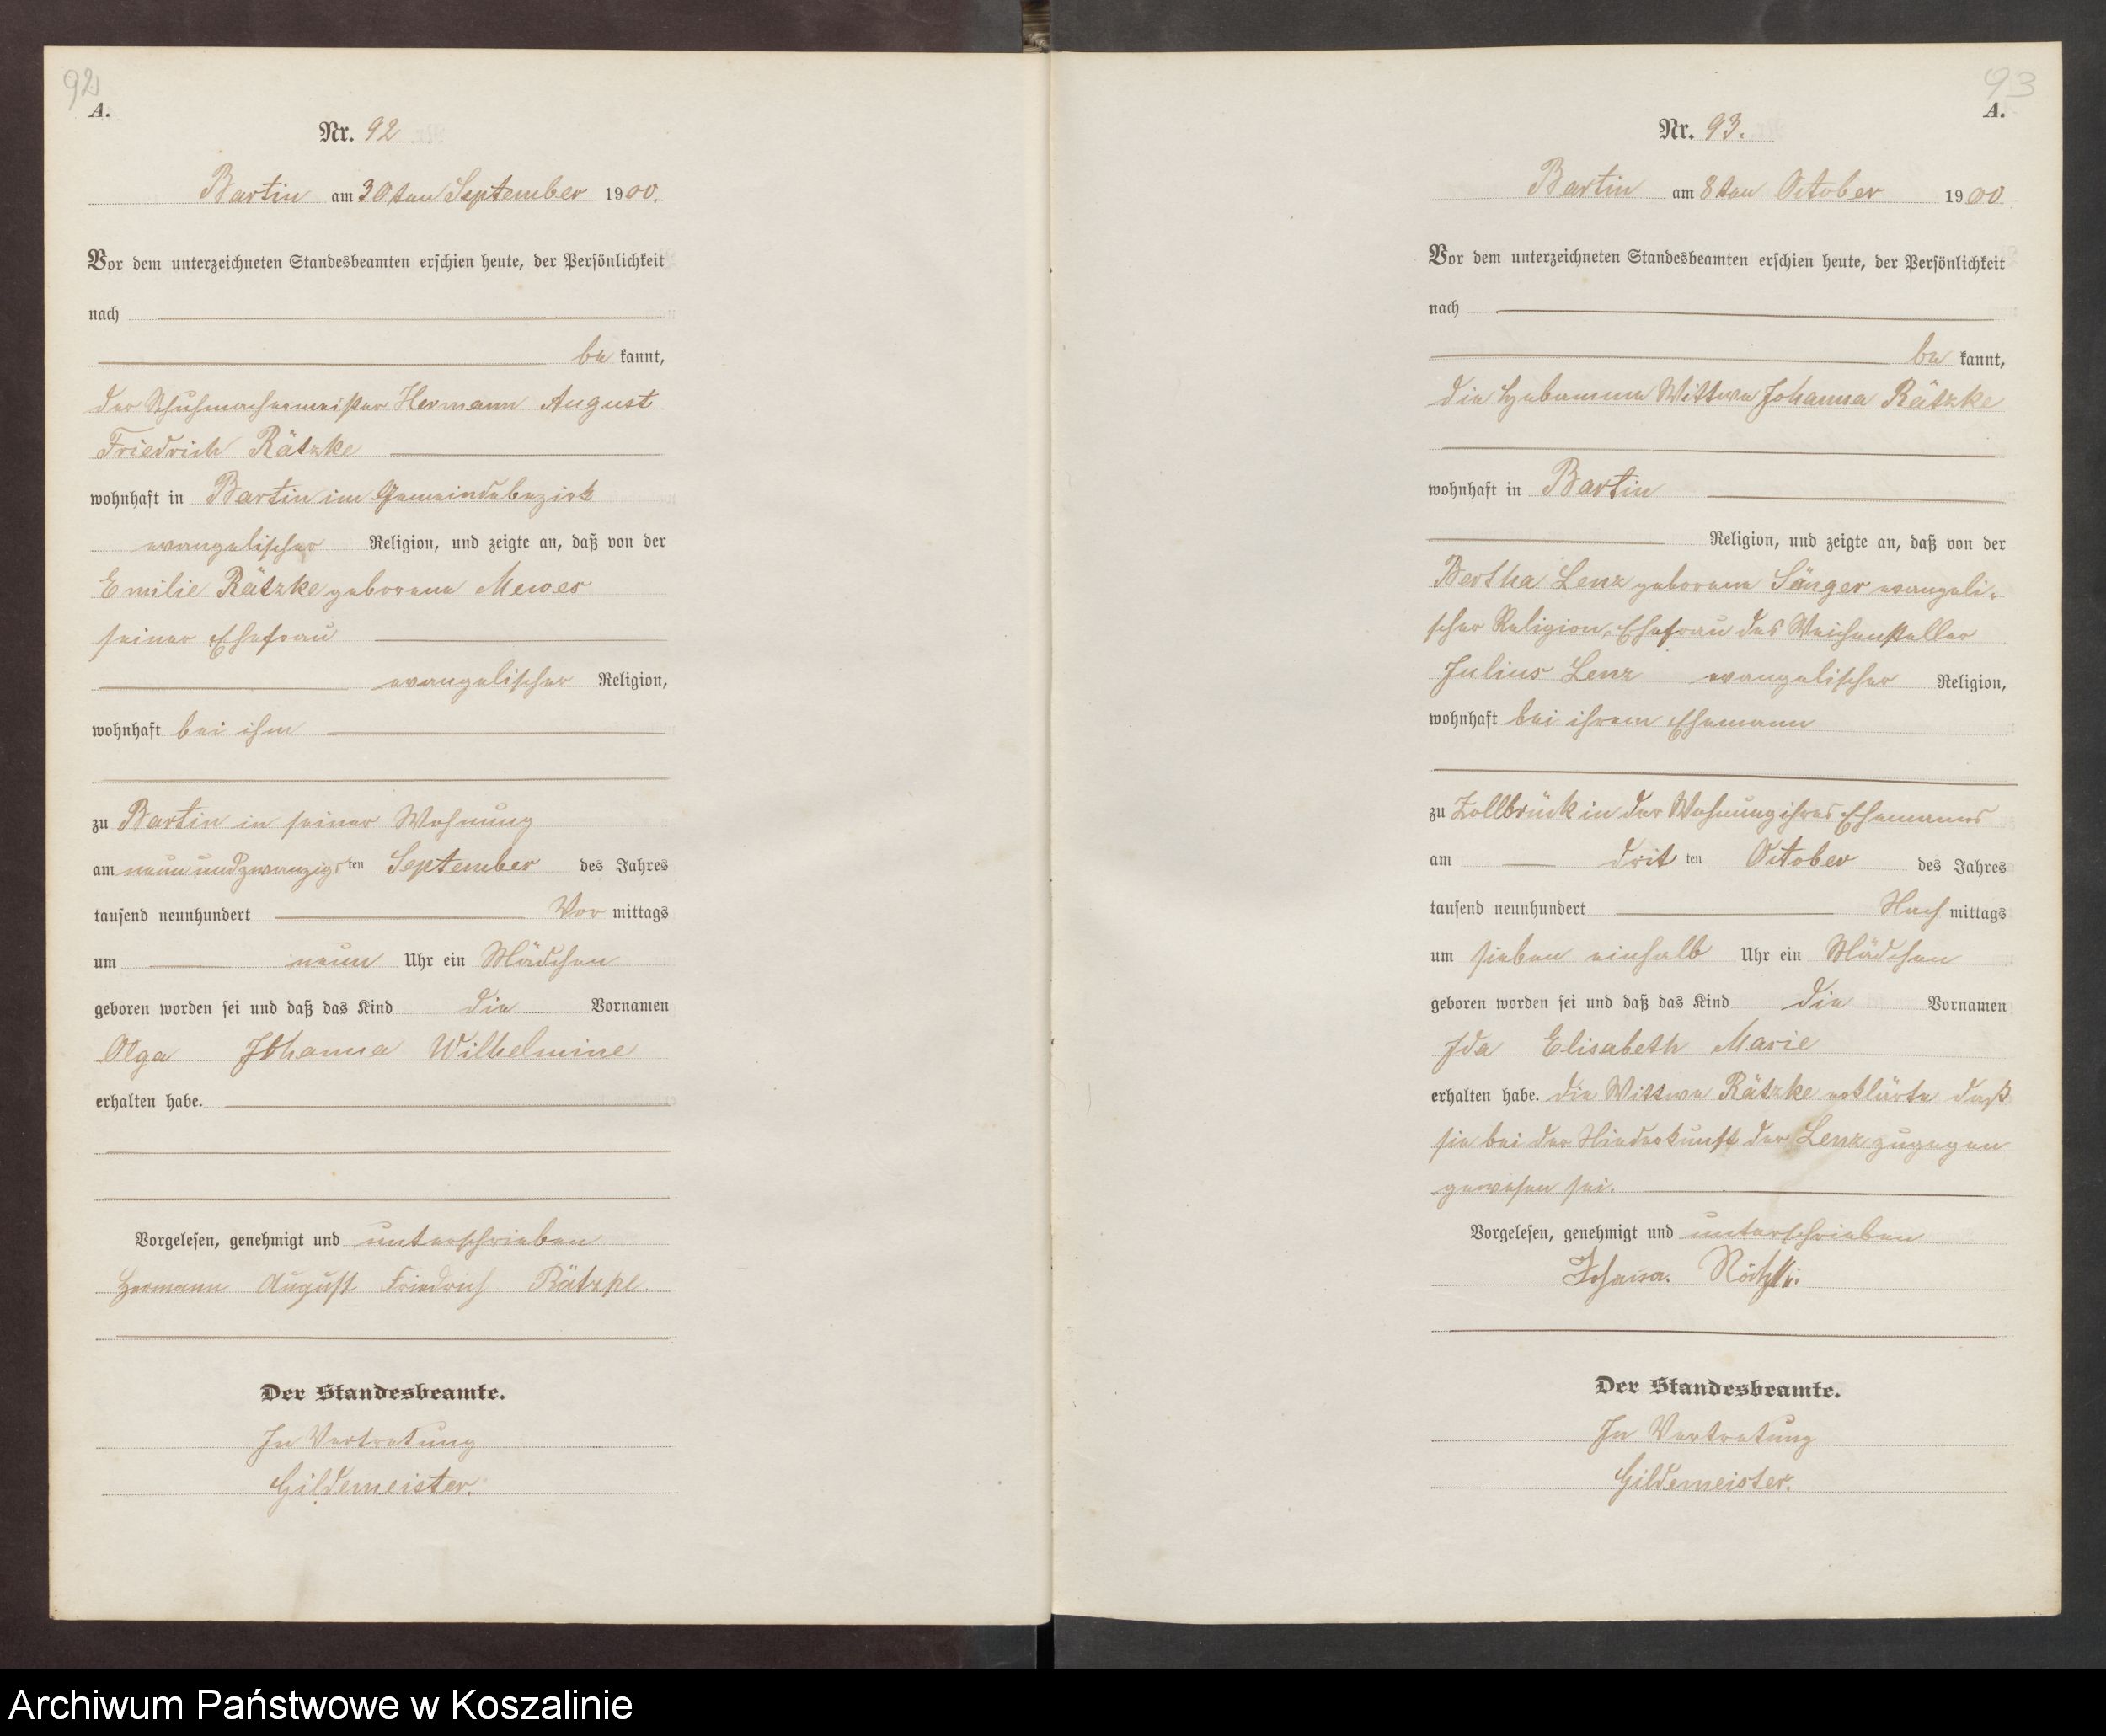 92
A.
Nr. 92
Bartin am 30ten September 1900.
Vor dem unterzeichneten Standesbeamten erschien heute, der Persönlichkeit
nach
be kannt,
der Schuhmachermeister Hermann August
Friedrich Rätzke
wohnhaft in Bartin im Gemeindebezirk
evangelischer Religion, und zeigte an, daß von der
Emilie Rätzke geborene Mewes
seiner Ehefrau
evangelischer Religion,
wohnhaft bei ihm
zu Bartin in seiner Wohnung
am neunundzwanzigsten September des Jahres
tausend neunhundert Vor mittags
um neun Uhr ein Mädchen
geboren worden sei und daß das Kind die Vornamen
Olga Johanna Wilhelmine
erhalten habe.
Vorgelesen, genehmigt und unterschrieben
Hermann August Friedrich Rätzke.
Der Standesbeamte.
In Vertretung
Gildemeister.
93
A.
Nr. 93.
Bartin am 8ten October 1900
Vor dem unterzeichneten Standesbeamten erschien heute, der Persönlichkeit
nach
be kannt,
die Hebamme Wittwe Johanna Rätzke
wohnhaft in Bartin
Religion, und zeigte an, daß von der
Bertha Lenz geborene Sänger evangeli-
scher Religion, Ehefrau des Weichensteller
Julius Lenz evangelischer Religion,
wohnhaft bei ihrem Ehemann
zu Zollbrück in der Wohnung ihres Ehemannes
am drit ten October des Jahres
tausend neunhundert Nach mittags
um sieben einhalb Uhr ein Mädchen
geboren worden sei und daß das Kind die Vornamen
Ida Elisabeth Marie
erhalten habe. die Wittwe Rätzke erklärte daß
sie bei der Niederkunft der Lenz zugegen
gewesen sei.
Vorgelesen, genehmigt und unterschrieben
Johanna Rätzke
Der Standesbeamte.
In Vertretung
Gildemeister.
Archiwum Państwowe w Koszalinie